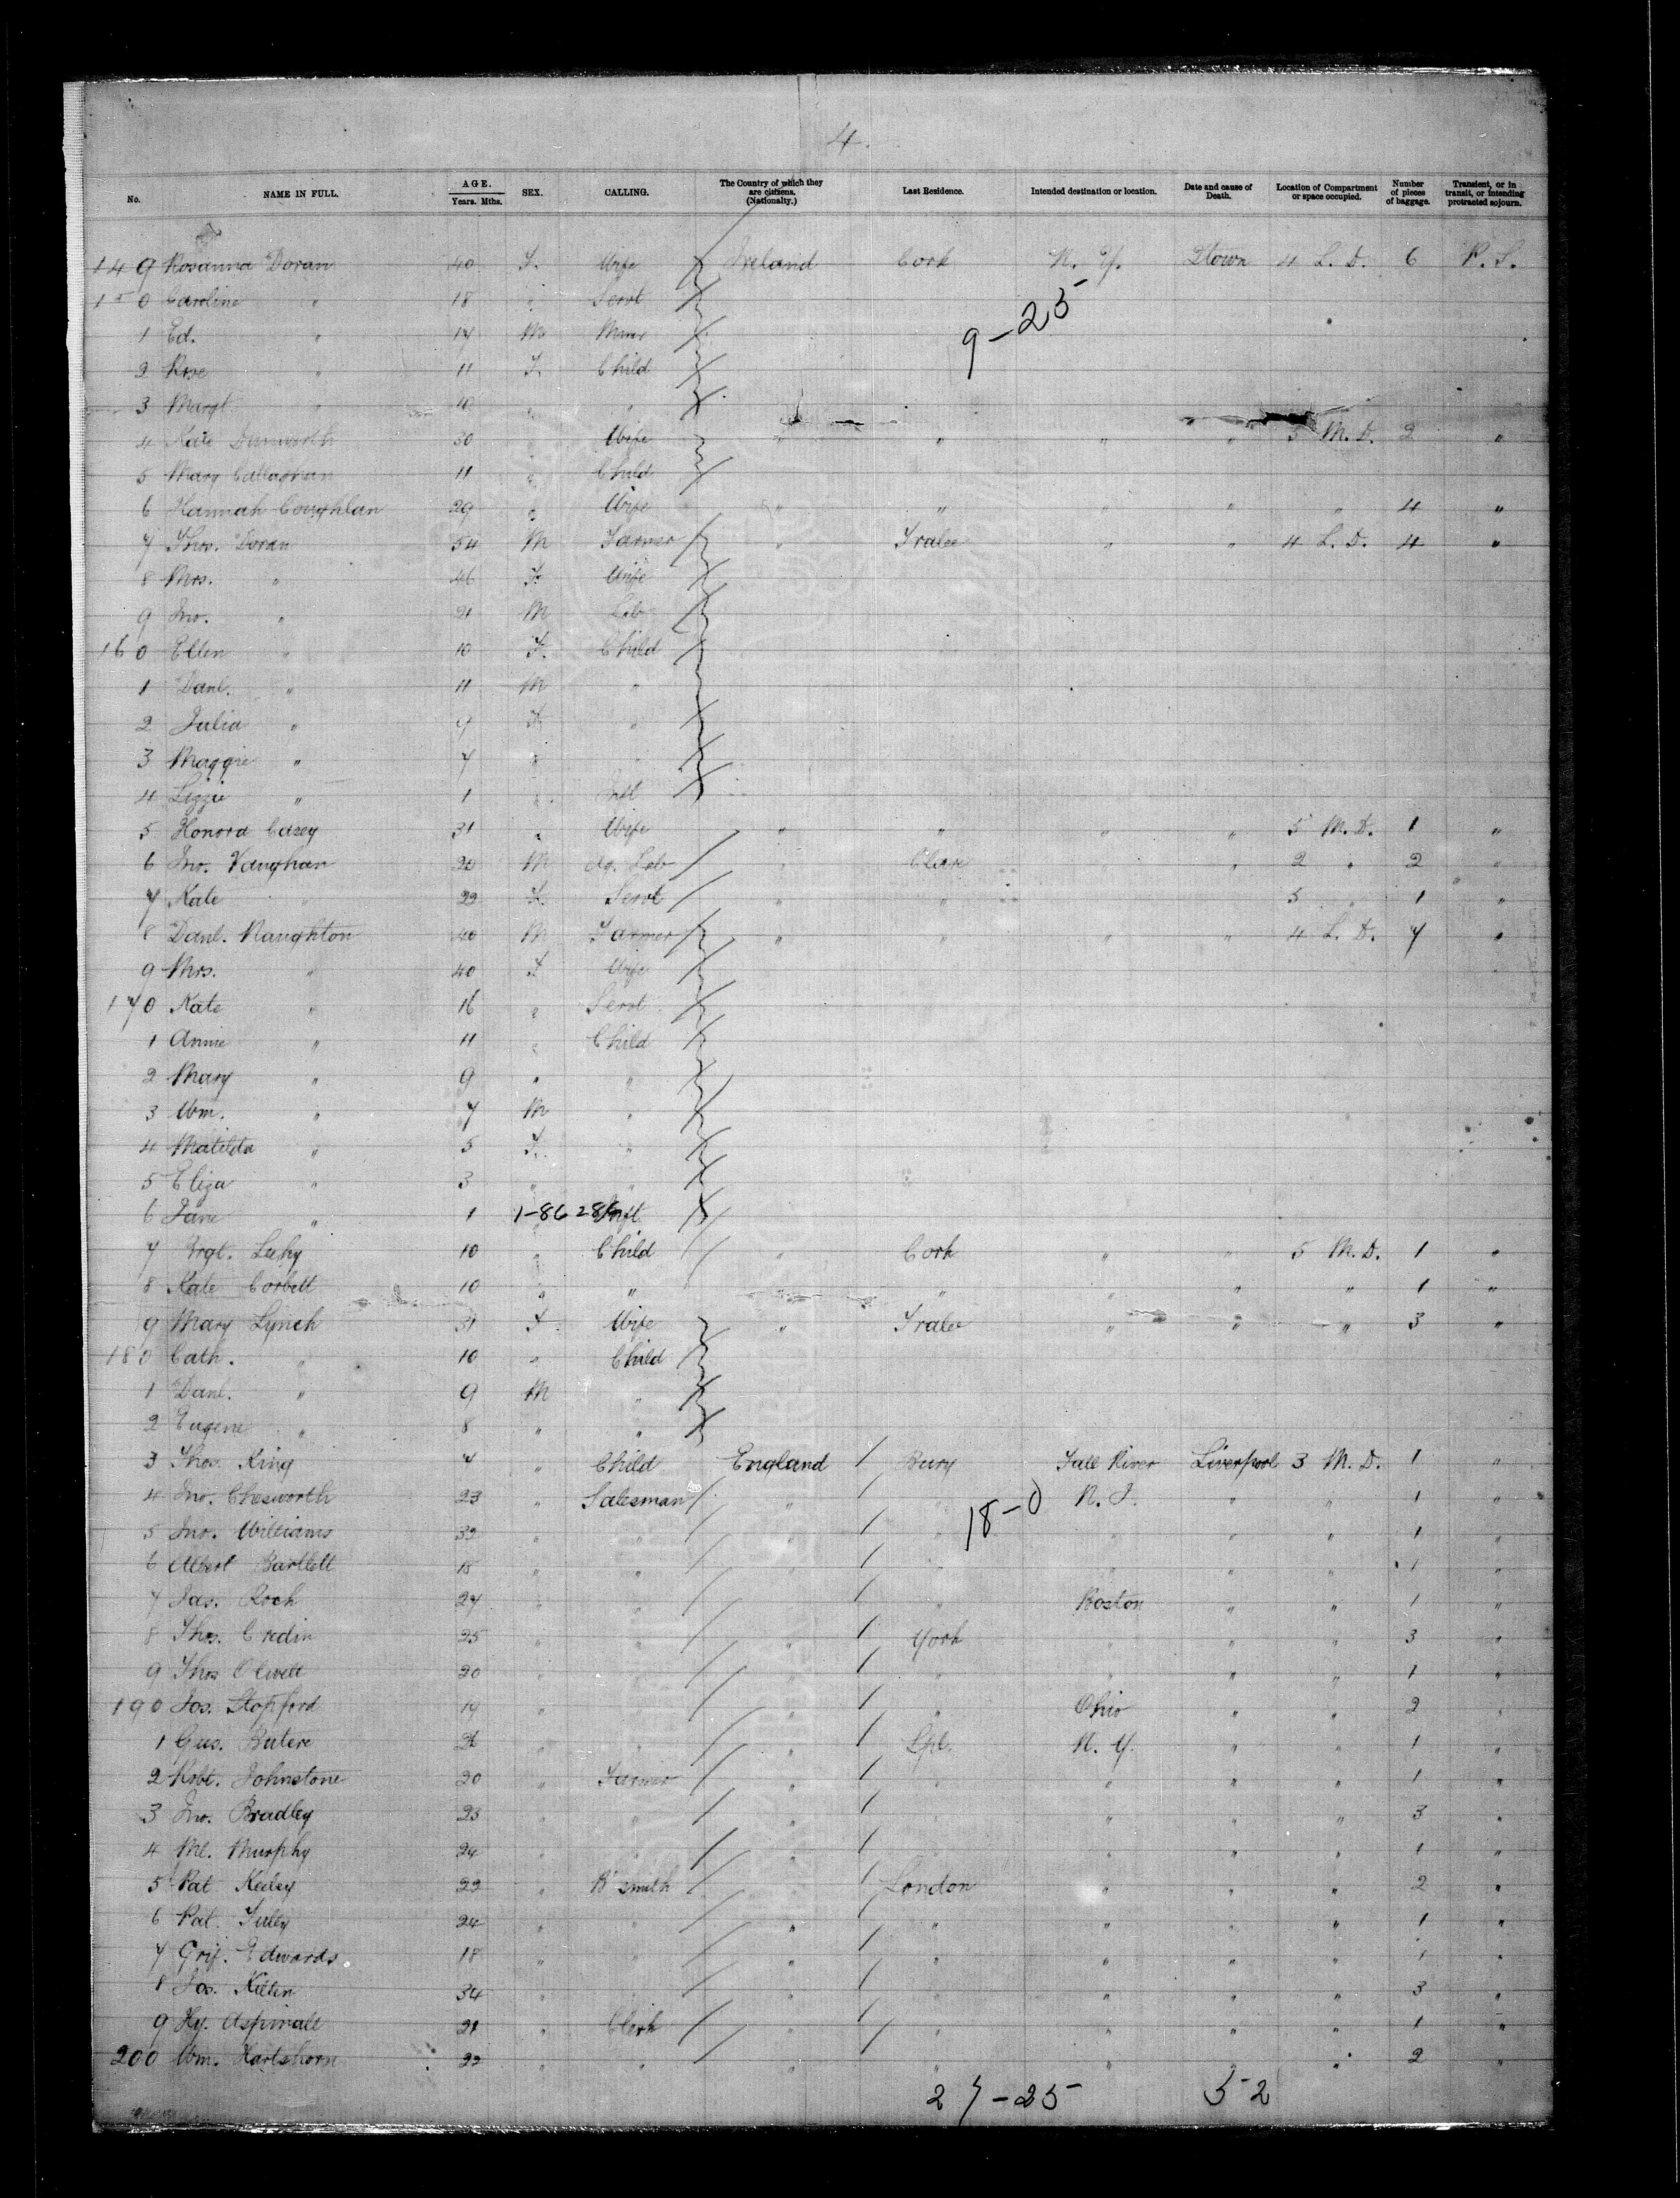 4.
No. NAME IN FULL. AGE. Years. Mths. SEX. CALLING. The Country of which they are citizens. (Nationality.) Last Residence. Intended destination or location. Date and cause of Death. Location of Compartment or space occupied. Number of pieces of baggage. Transient, or in transit, or intending protracted sojourn.
149 Rosanna Doran 40 F. Wife Ireland Cork N. Y. Qtown 4 L. D. 6 P. S.
150 Caroline " 18 " Servt
9-25
1 Ed. " 14 M
2 Rose " 11 F. Child
3 Margt " "
4 Kate 30 " Wife " " " " 5 M. D. 2 "
5 Mary Callaghan 11 " Child
6 Hannah Coughlan 29 " Wife " " " " " 4 "
7 Thos. Doran 54 M Farmer " Tralee " " 4 L. D. 4 "
8 Mrs. " 46 F. Wife
9 Jno. " 21 M Lab
160 Ellen " 10 F. Child
1 Danl. " 11 M "
2 Julia " 9 F "
3 Maggie " 7 " "
4 Lizzie " 1 " Inft
5 Honora Casey 31 " Wife " " " " 5 M. D. 1 "
6 Jno. Vaughan 20 M Ag. Lab " Clare " 2 " 2 "
7 Kate " 22 F. Servt " " 5 " 1 "
8 Danl. Naughton 40 M Farmer " " " " 4 L. D. 7 "
9 Mrs. " 40 F Wife
170 Kate " 16 " Servt
1 Annie " 11 " Child
2 Mary " 9 " "
3 Wm. " 7 M "
4 Matilda " 5 F. "
5 Eliza " 3 " "
6 Jane " 1 1-86 286 Inft
7 Mrgt. Leehy 10 " Child " Cork " " 5 M. D. 1 "
8 Kate Corbett 10 " " " " " " 1 "
9 Mary Lynch 31 F. Wife " Tralee " " " 3 "
180 Cath. " 10 " Child
1 Danl. " 9 M "
2 Eugene " 8 " "
3 Thos. King 7 " Child England Bury Fall River Liverpool 3 M. D. 1 "
4 Jno. Chesworth 23 " Salesman " " N. J. " " 1 "
18-0
5 Jno. Williams 32 " " " " " " " 1 "
6 Albert Bartlett 18 " " " " " " " 1 "
7 Jas. Roch 27 " " " " Boston " " 1 "
8 Thos. Credin 25 " " " York " " " 3 "
9 Thos 20 " " " " " " " 1 "
190 Jos. Stopford 19 " " " " Ohio " " 2 "
1 Gus. 26 " " " Lpl. N. Y. " " 1 "
2 Robt. Johnstone 20 " Farmer " " " " " 1 "
3 Jno. Bradley 23 " " " " " " " 3 "
4 Ml. Murphy 24 " " " " " " " 1 "
5 Pat Keeley 22 " B'smith " London " " " 2 "
6 Pat. 24 " " " " " " " 1 "
7 Grif. Edwards. 18 " " " " " " " 1 "
8 Jos. Killen 34 " " " " " " " 3 "
9 Hy. Aspinall 21 " Clerk " " " " " 1 "
200 Wm. Hartshorn 22 " " " " " " " 2 "
27-25 52